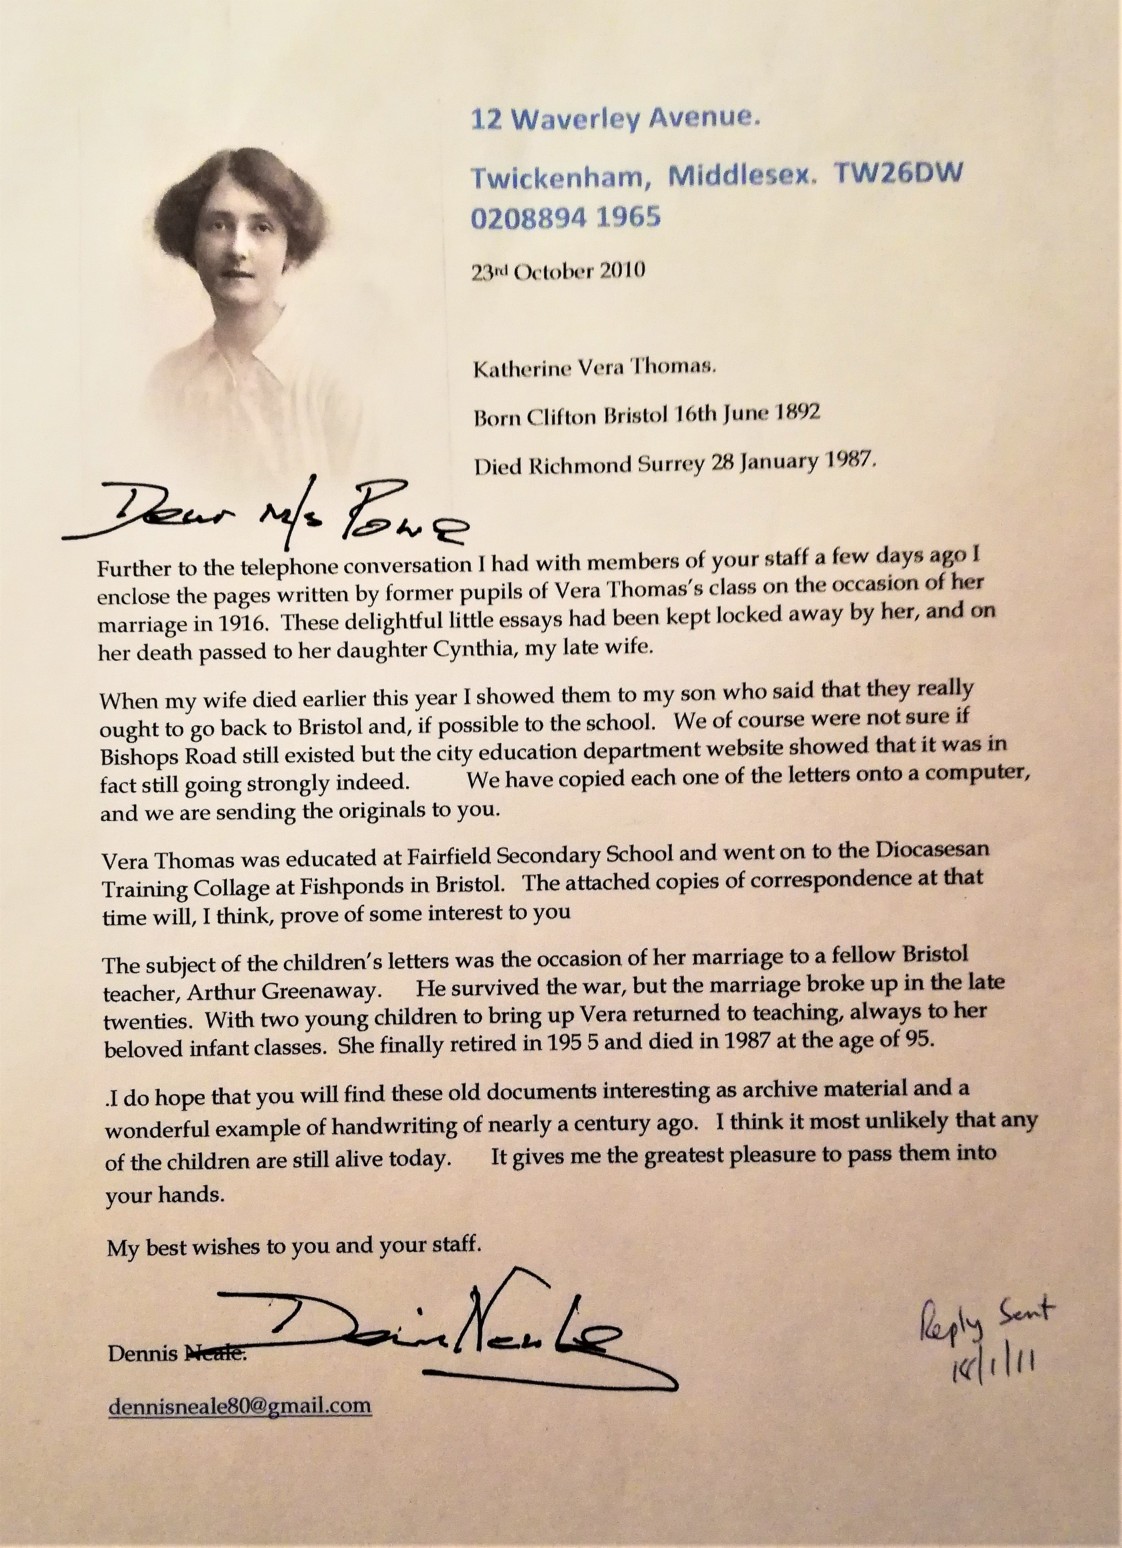 12 Waverley Avenue.
Twickenham, Middlesex. TW26DW
0208894 1965
23rd October 2010
Katherine Vera Thomas.
Born Clifton Bristol 16th June 1892
Died Richmond Surrey 28 January 1987.
Dear M/s Powe
Further to the telephone conversation I had with members of your staff a few days ago I
enclose the pages written by former pupils of Vera Thomas's class on the occasion of her
marriage in 1916. These delightful little essays had been kept locked away by her, and on
her death passed to her daughter Cynthia, my late wife.
When my wife died earlier this year I showed them to my son who said that they really
ought to go back to Bristol and, if possible to the school. We of course were not sure if
Bishops Road still existed but the city education department website showed that it was in
fact still going strongly indeed. We have copied each one of the letters onto a computer,
and we are sending the originals to you.
Vera Thomas was educated at Fairfield Secondary School and went on to the Diocasesan
Training Collage at Fishponds in Bristol. The attached copies of correspondence at that
time will, I think, prove of some interest to you
The subject of the children's letters was the occasion of her marriage to a fellow Bristol
teacher, Arthur Greenaway. He survived the war, but the marriage broke up in the late
twenties. With two young children to bring up Vera returned to teaching, always to her
beloved infant classes. She finally retired in 195 5 and died in 1987 at the age of 95.
.I do hope that you will find these old documents interesting as archive material and a
wonderful example of handwriting of nearly a century ago. I think it most unlikely that any
of the children are still alive today. It gives me the greatest pleasure to pass them into
your hands.
My best wishes to you and your staff.
Dennis Neale.
dennisneale80@gmail.com
Reply Sent
18/1/11